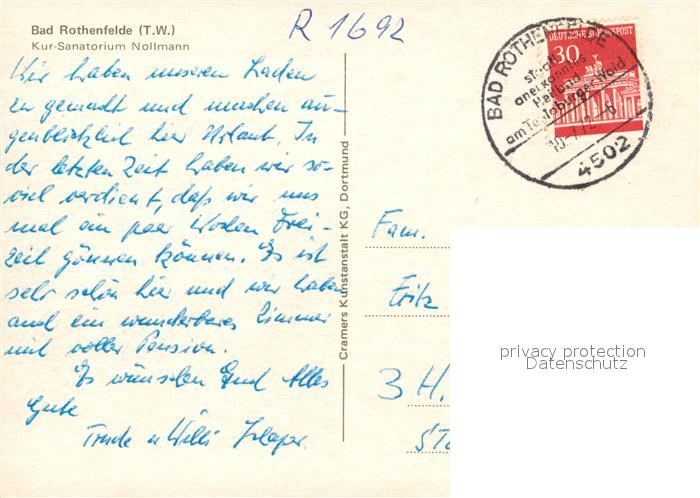 Bad Rothenfelde (T.W.)
Kur-Sanatorium Nollmann
R 1692
Wir haben unseren Laden
zu gemacht und machen au-
genblicklich hier Urlaub. In
der letzten Zeit haben wir so-
viel verdient, daß wir uns
mal ein paar Wochen Frei-
zeit gönnen können. Es ist
sehr schön hier und wir haben
auch ein wunderbares Zimmer
mit voller Pension.
Es wünschen Euch Alles
Gute
Trude u Willi
Cramers Kunstanstalt KG, Dortmund
DEUTSCHE BUNDESPOST
30
BAD ROTHENFELDE
staatl.
anerkanntes
Heilbad
am Teutoburger Wald
4502
Fam.
Fritz
3 H.
privacy protection
Datenschutz